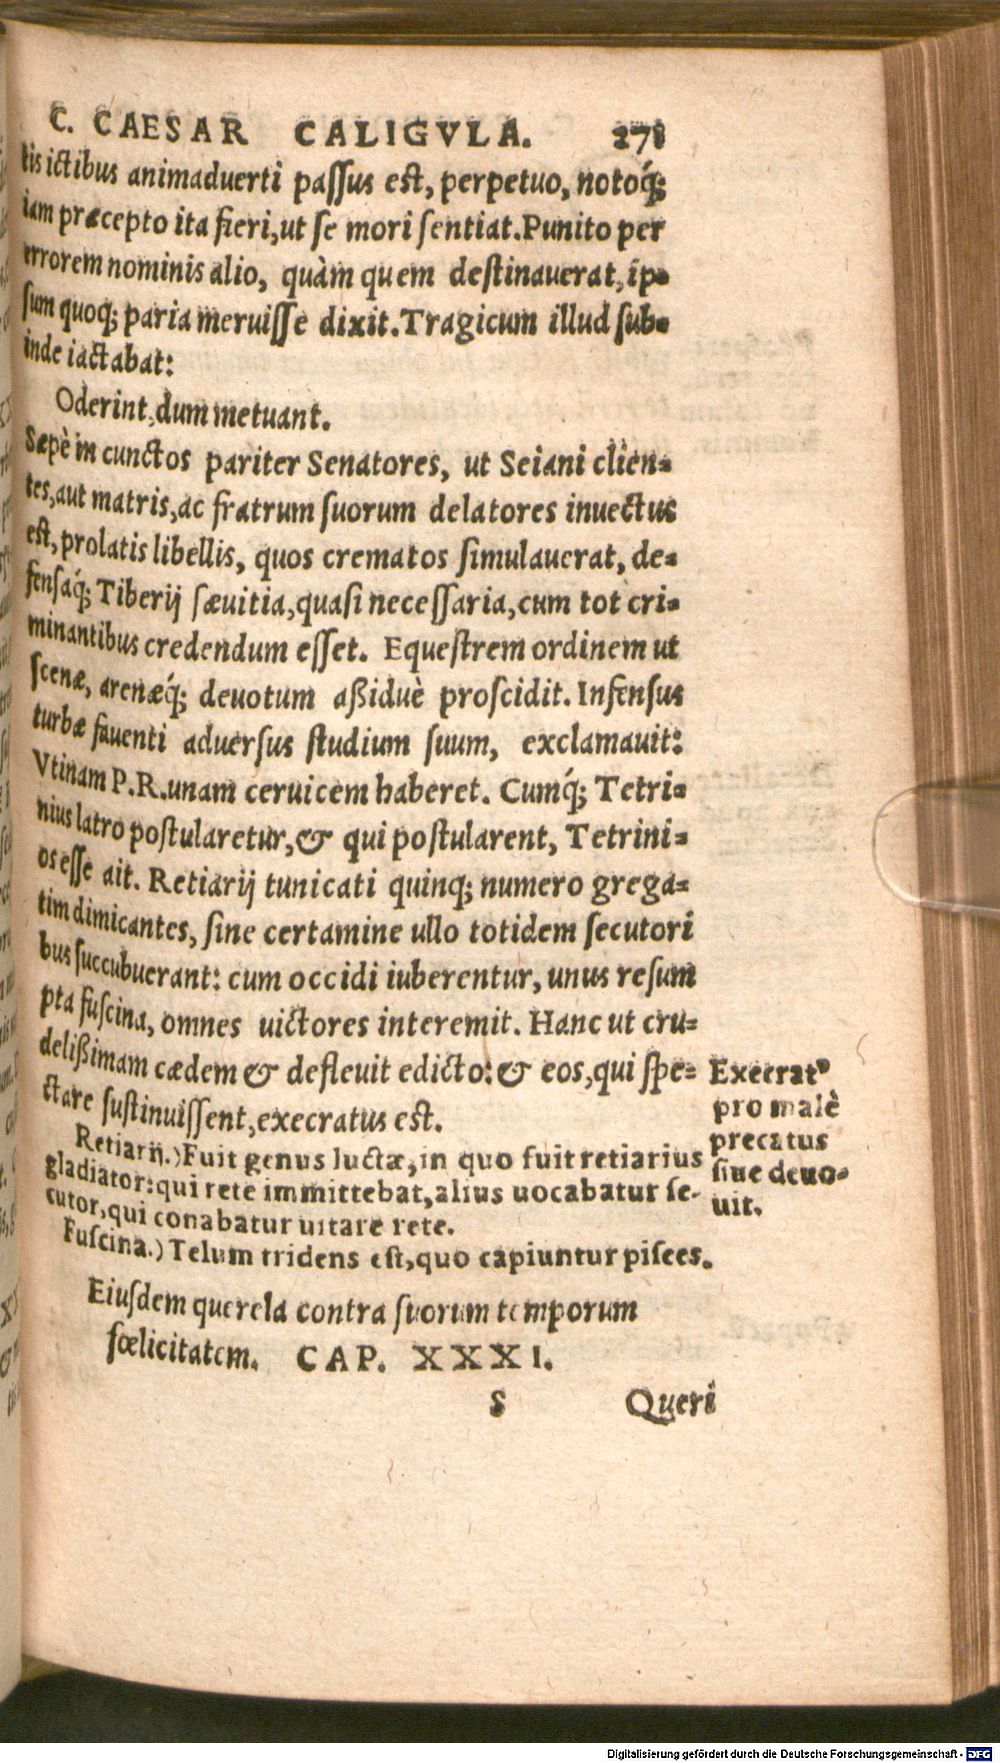 C. CAESAR CALIGVLA. 278
tis ictibus animaduerti paſſus est, perpetuo, notoq́;
iam præcepto ita fieri, ut ſe mori ſentiat. Punito per
errorem nominis alio, quàm quem destinauerat, ip-
ſum quoq; paria meruiſſe dixit. Tragicum illud ſub-
inde iactabat:
Oderint, dum metuant.
Sæpè in cunctos pariter Senatores, ut Seiani clien-
tes, aut matris, ac fratrum ſuorum delatores inuectus
est, prolatis libellis, quos crematos ſimulauerat, de-
fenſaq́; Tiberij ſæuitia, quaſi neceſſaria, cum tot cri-
minantibus credendum eſſet. Equeſtrem ordinem ut
ſcenæ, arenæq́; deuotum aßiduè proſcidit. Infenſus
turbæ fauenti aduerſus ſtudium ſuum, exclamauit:
Vtinam P. R. unam ceruicem haberet. Cumq́; Tetri-
nius latro poſtularetur, & qui poſtularent, Tetrini-
os eſſe ait. Retiarij tunicati quinq; numero grega-
tim dimicantes, ſine certamine ullo totidem ſecutori
bus ſuccubuerant: cum occidi iuberentur, unus reſum
pta fuſcina, omnes uictores interemit. Hanc ut cru-
delißimam cædem & defleuit edicto: & eos, qui ſpe-
ctare ſuſtinuiſſent, execratus est.
Execrat⁹
pro malè
precatus
ſiue deuo-
uit.
Retiarij.) Fuit genus luctæ, in quo fuit retiarius
gladiator: qui rete immittebat, alius uocabatur ſe-
cutor, qui conabatur uitare rete.
Fuſcina.) Telum tridens est, quo capiuntur piſces.
Eiuſdem querela contra ſuorum temporum
fœlicitatem. CAP. XXXI.
S Queri
Digitalisierung gefördert durch die Deutsche Forschungsgemeinschaft - DFG